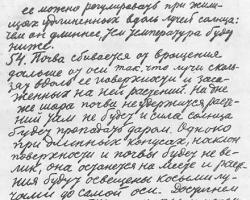 ее можно регулировать при жим-
щах удлиненных вдоль лучей солнца:
чем он длиннее, тем температура будет
ниже.
54. Почва сбивается от вращения
дальше от оси так, что лучи сколь-
зят вдоль ее поверхности и заса-
женных на ней растений. На дне
же шара почва не удержится, расте-
ний там не будет и сила солнца
будет пропадать даром. Однако
при длинных конусах, наклон
поверхности и почвы будет не ве-
лик, она останется на месте и расте-
ния будут освещены косыми лу-
чами до самой оси. Достигнем